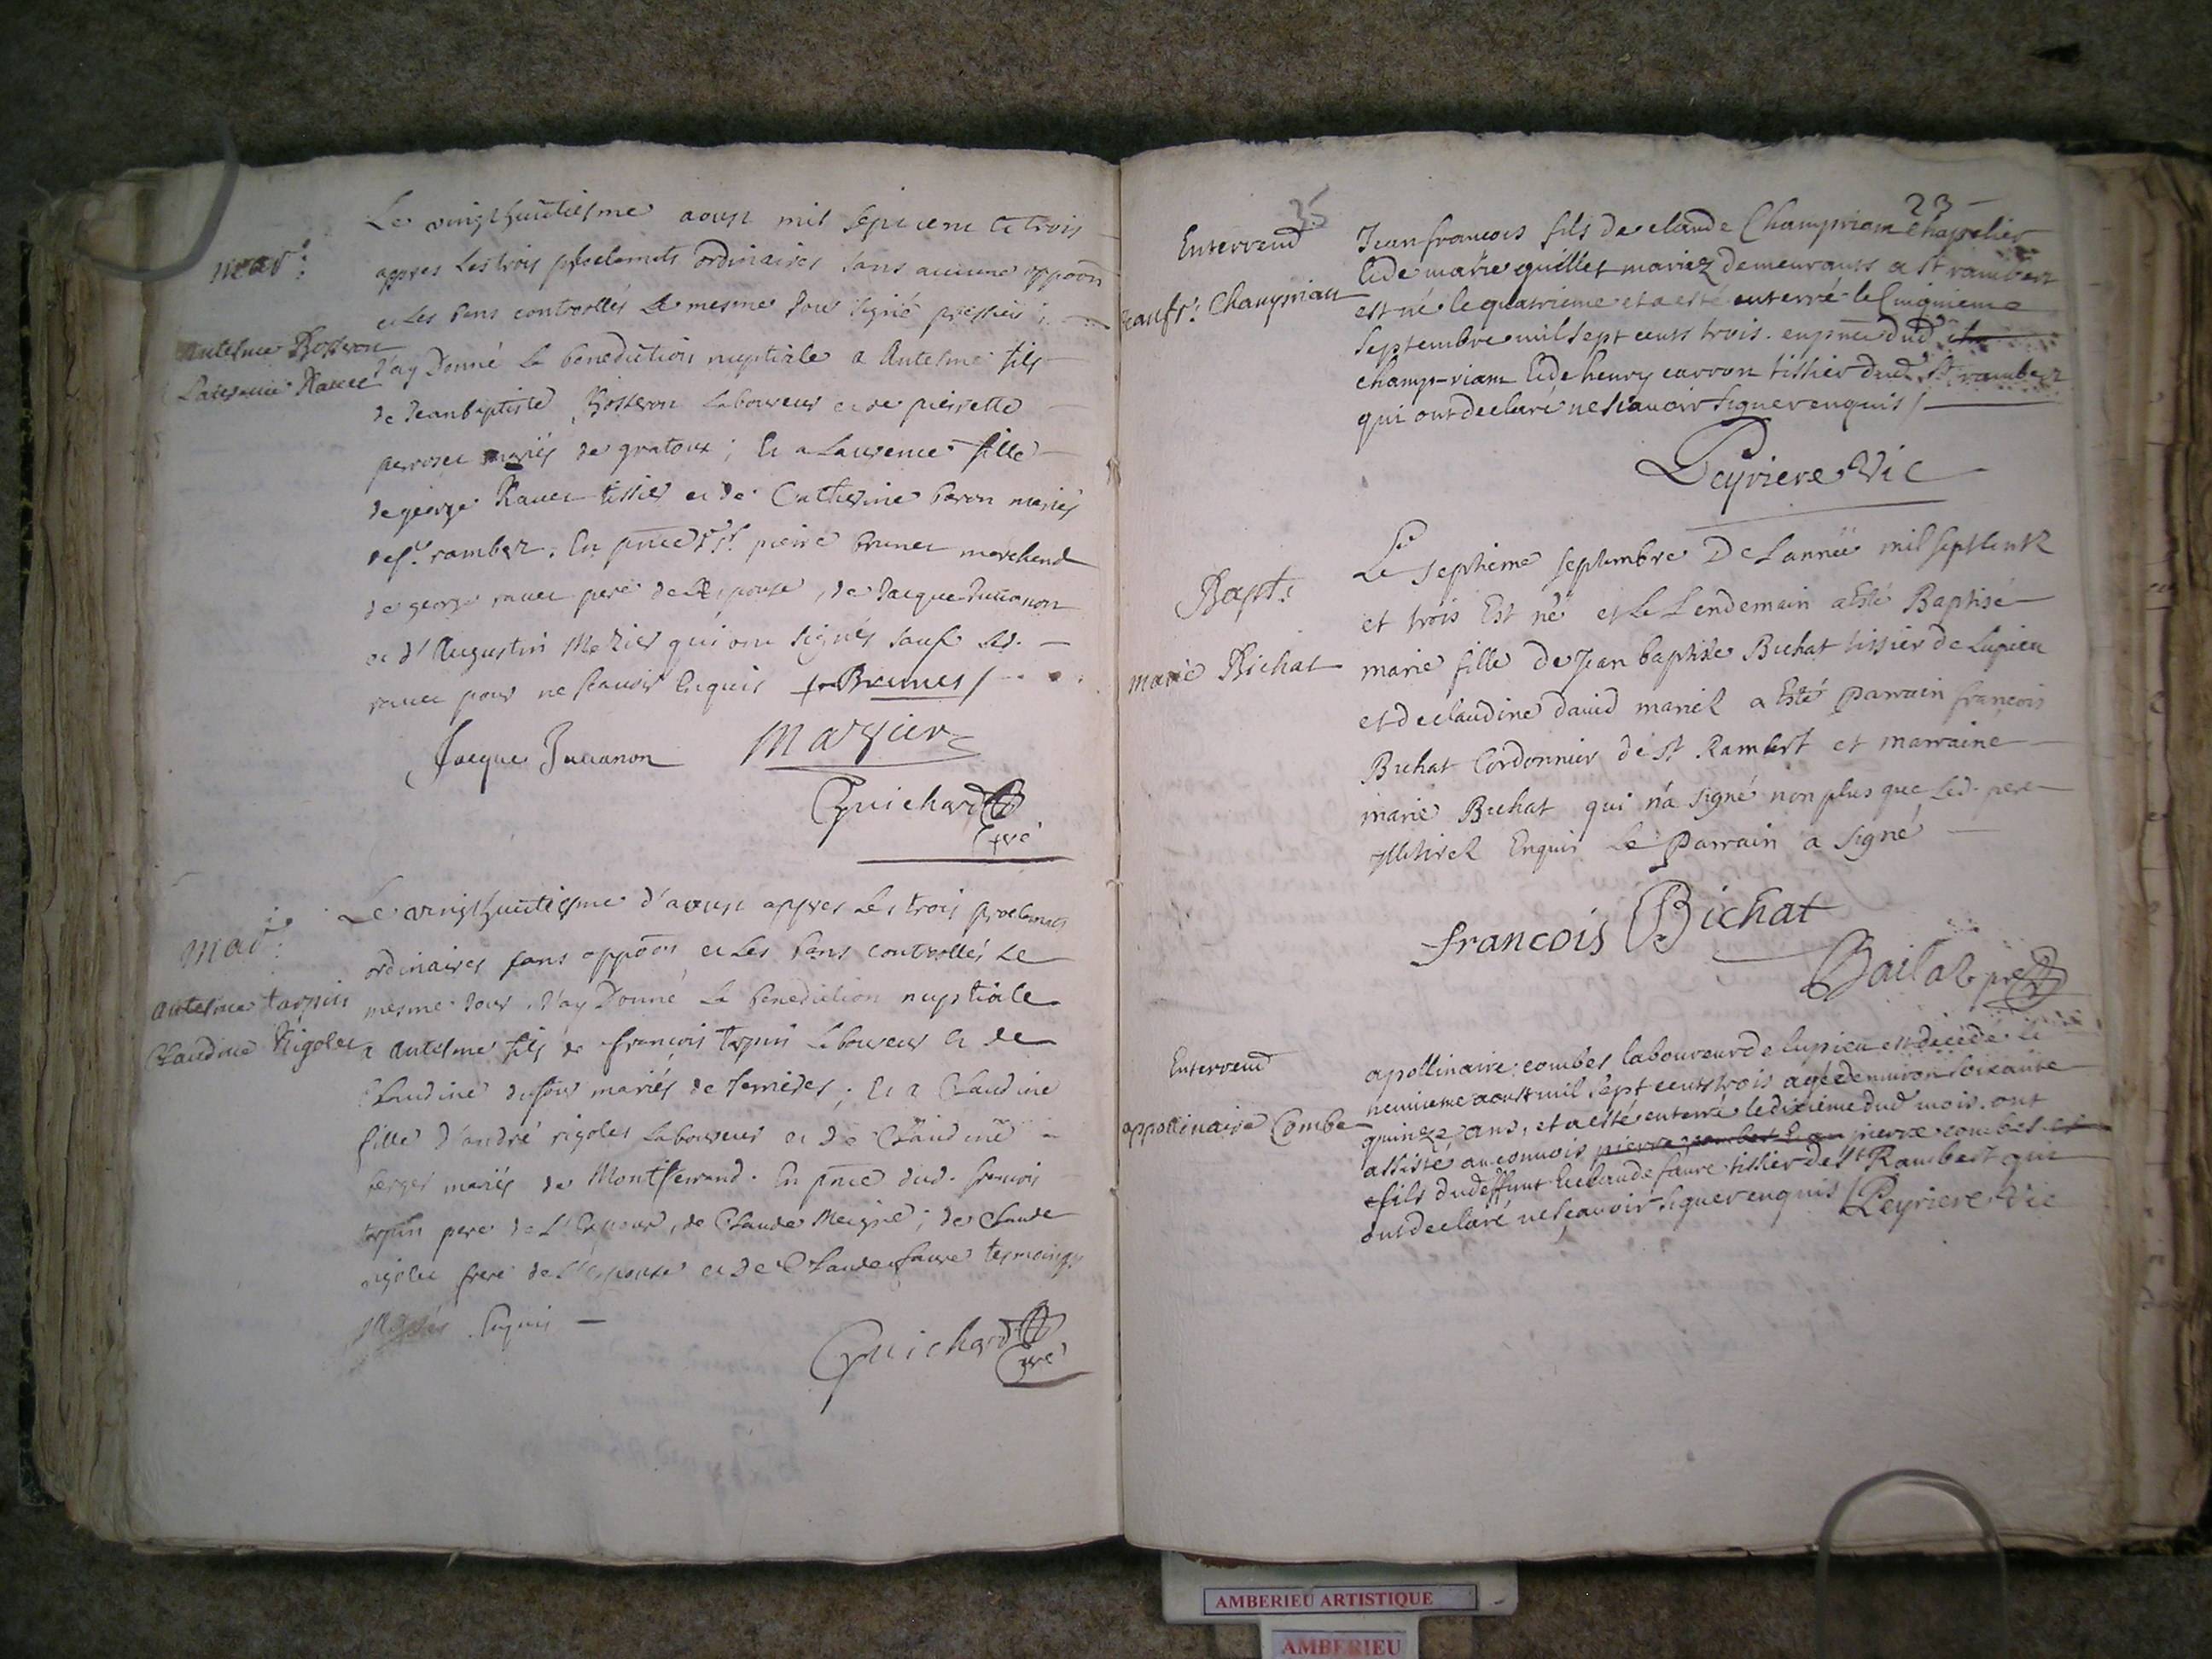 Mar:
Antelme Bosseron
Laurence Rauet
Le vingthuictiesme aoust mil sept cent et trois
appres les trois proclamats ordinaires sans aucune oppoon
et les bans controllés le mesme jour signé
J'ay Donné la benediction nuptiale a Antelme fils
de Jeanbaptiste Bosseron laboureur et de pierrette
perroset mariés de gratoux ; Et a Laurence fille
de george Rauet tissier et de Catherine baron mariés
de st. rambert. En pnce de sr. pierre brunet marchand
de george rauet pere de L'Espouse, de Jacque Juuanon
et d'Augustin Mazier qui ont signés sauf led.
rauet pour ne scauoir Enquis Brunet
Jacque Juuanon
Mazier
Guichard
Curé
Mar:
Antelme tarpin
Claudine Rigolet
Le vingthuictiesme d'aoust appres les trois proclamats
ordinaires sans oppoon et les bans controllés le
mesme jour J'ay Donné la benediction nuptiale
a Antelme fils de françois tarpin laboureur et de
Claudine dufour mariés de ; Et a Claudine
fille d'andré rigolet laboureur et de Claudine
berger mariés de Montferrand. En pnce dud. françois
tarpin pere de L'Espoux, de Claude Meigne ; de Claude
rigolet frere de L'espouse et de Claude faure tesmoings
Enquis
Guichard
Curé
35
23
Enterremt
Jeanfr: Champriam
Jean francois fils de claude Champriam Chapelier
Et de marie quillet mariez demeurants a St rambert
est né le quatrieme et a esté enterré le Cinquieme
Septembre mil sept cents trois. en pnce dud
champ-riam Et de henry carron tissier dud St rambert
qui ont declaré ne scauoir signer enquis /
Peyriere Vic
Bapt:
marie Bichat
Le septieme septembre De Lannée mil sept centz
et trois Est né et le Lendemain a Esté Baptisé
marie fille de Jean baptiste Bichat tissier de Lupieu
et de claudine dauid mariez a Esté parrain francois
Bichat Cordonnier de St Rambert et marraine
marie Bichat qui n'a signé non plus que led. pere
Illitirez Enquis Le Parrain a signé
francois Bichat
Bailat pre
Enterremt
appollinaire Combe
apollinaire combet laboureur de lupieu est decedé le
neuuieme aoust mil sept cents trois agé denuiron soixante
quinze ans, et a esté enterré le dixiéme dud mois. ont
assisté au conuois pierre combet pierre combet et
fils dud deffunt Et claude faure tissier de St Rambert qui
ont declaré ne scauoir signer enquis / Peyriere Vic
AMBERIEU ARTISTIQUE
AMBERIEU